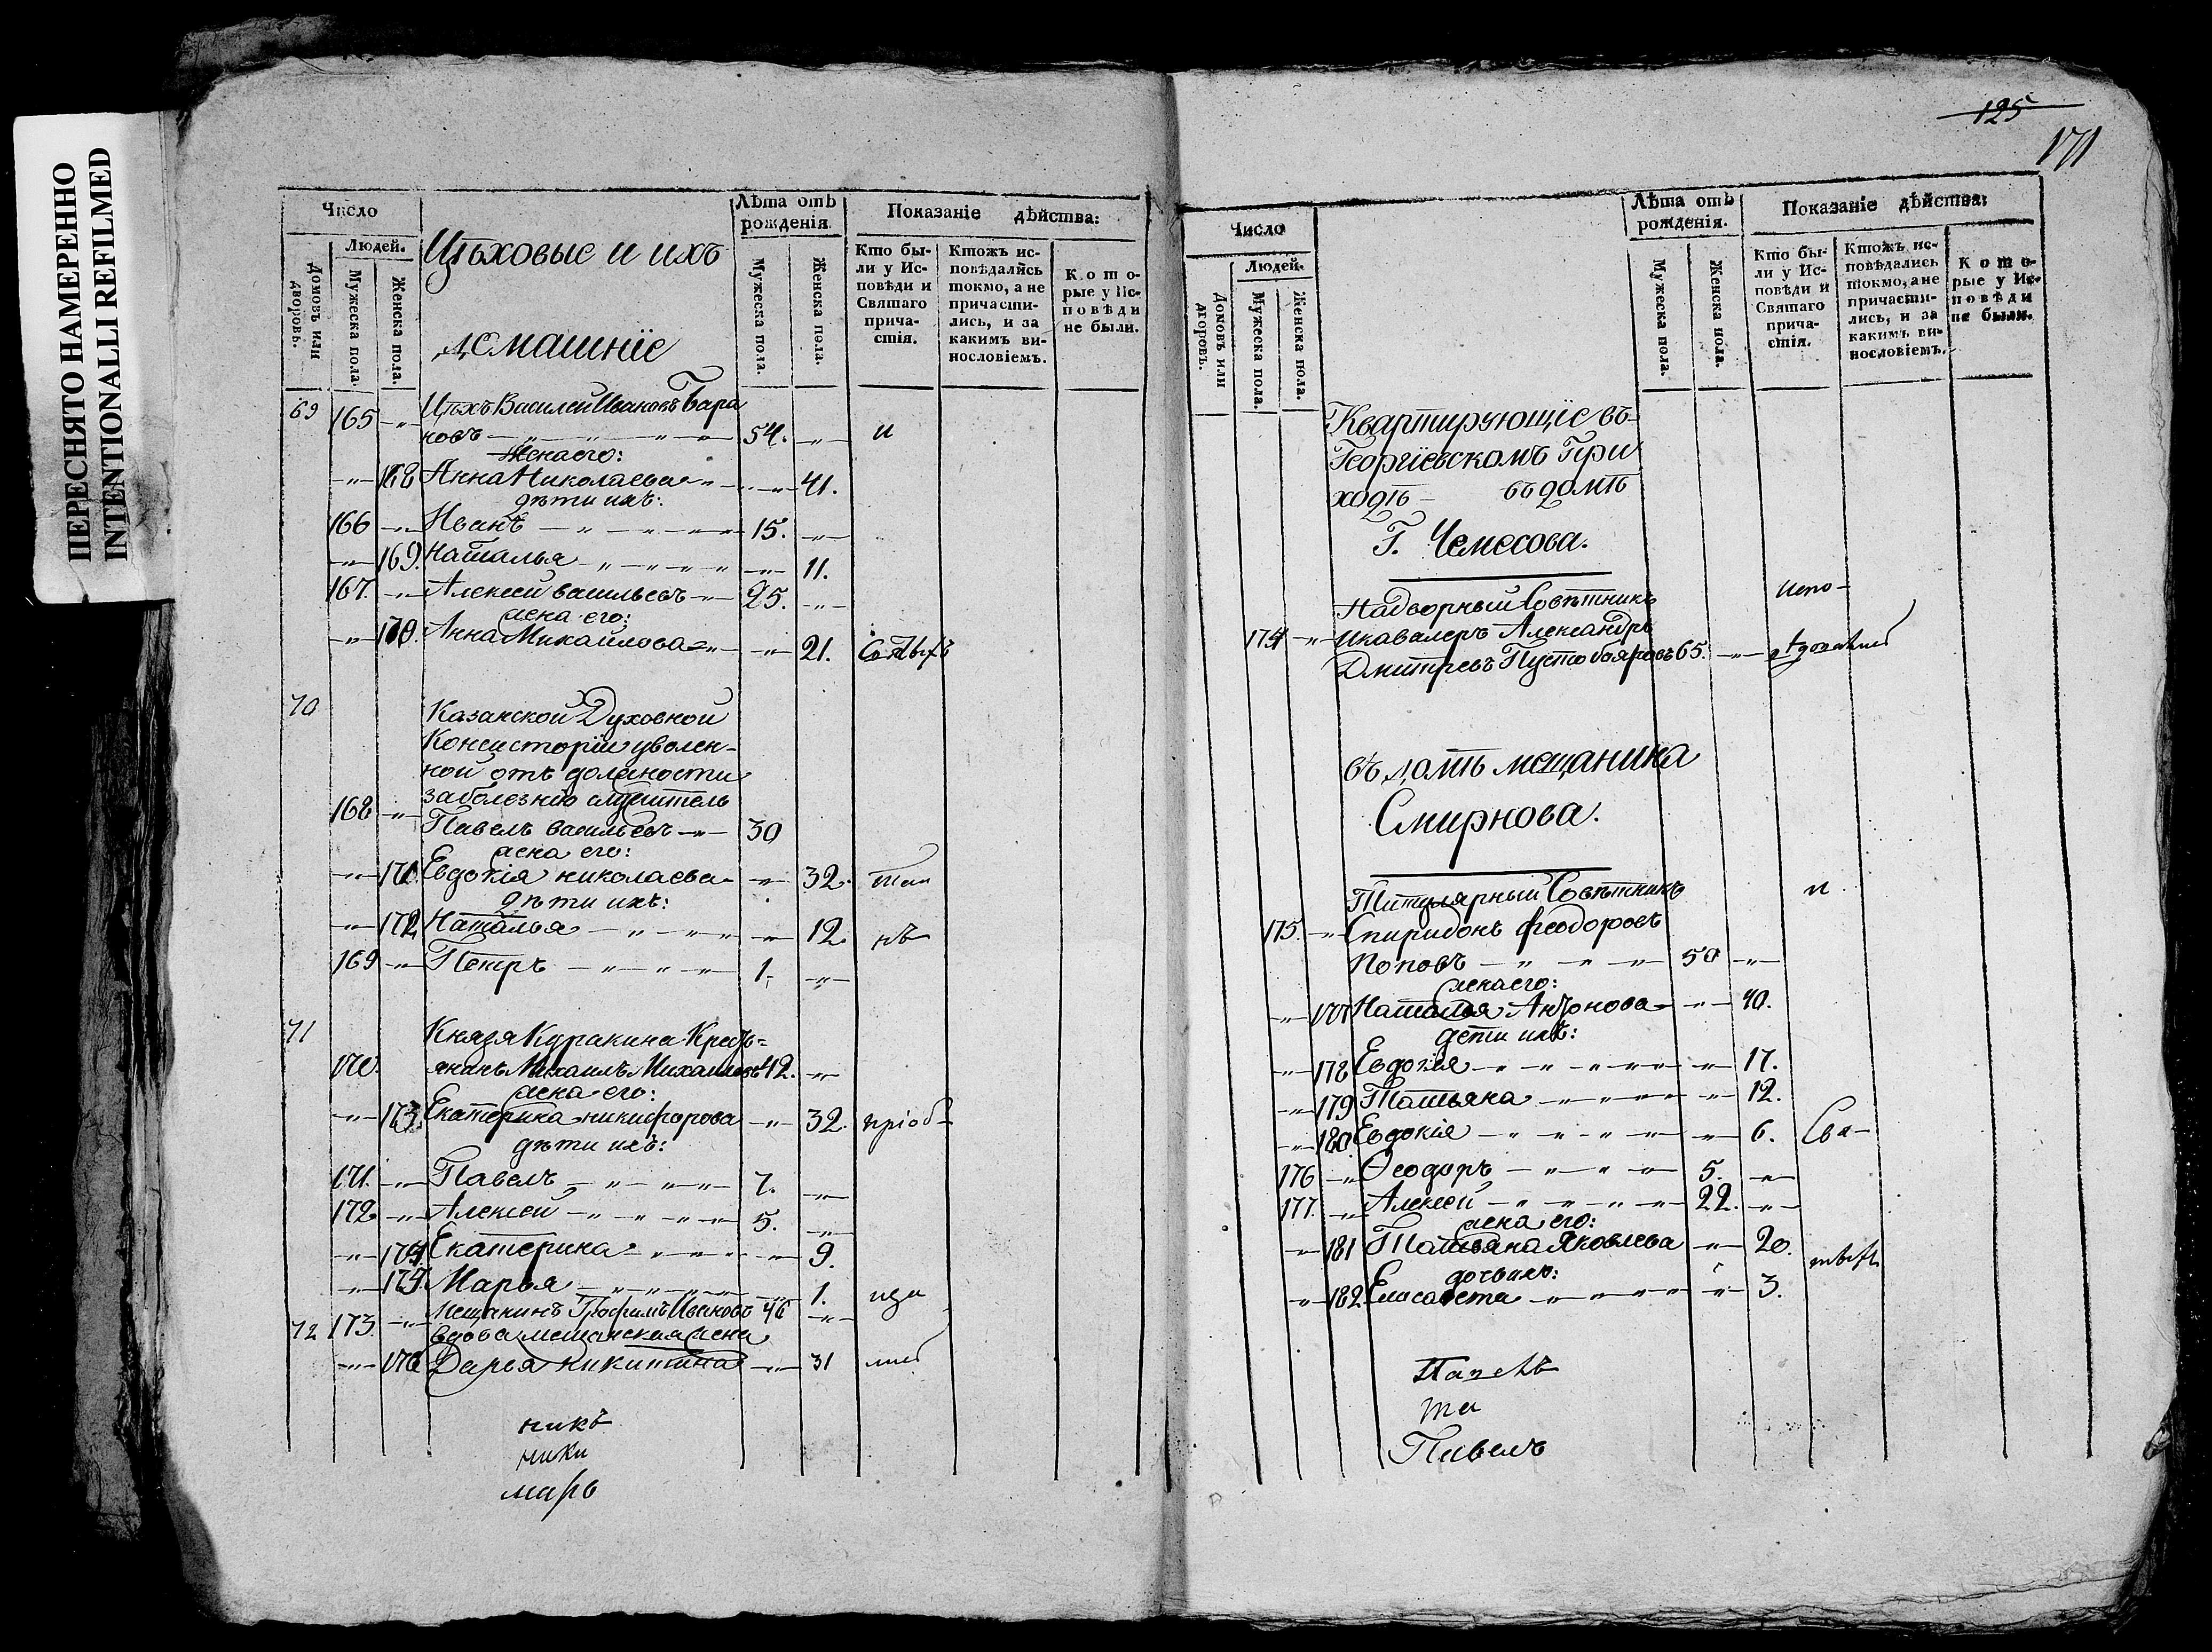 ПЕРЕСНЯТО НАМЕРЕННО
INTENTIONALLI REFILMED
Число
Людей.
Домовъ или дворовъ.
Мужеска пола.
Женска пола.
Цѣховые и ихъ
домашнїе
Лѣта отъ рожденія.
Мужеска пола.
Женска пола.
Показаніе дѣйства:
Кто бы-
ли у Ис-
повѣди и
Святаго
прича-
стія.
Ктожъ ис-
повѣдались
токмо, а не
причасти-
лись, и за
какимъ ви-
нословіемъ.
Кото-
рые у Ис-
повѣди
не были.
69 165 Цѣхъ Василей Ивановъ Бара
новъ 54. и
Жена его:
168 Анна Николаева 41.
дѣти ихъ:
166 Иванъ 15.
169. Наталья 11.
167. Алексей васильевъ 25.
жена его:
170. Анна Михайлова 21.
70 Казанской Духовной
Консисторїи уволен-
ной отъ должности
за болезнїю служитель
168 Павелъ васильевъ 30
жена его:
171 Евдокїя николаева 32. таи
дѣти ихъ:
172 Наталья 12. нъ
169 Петръ 1.
71 Князя Куракина Кресть=
170. янинъ Михаилъ Михаиловъ 42.
жена его:
173. Екатерина никифорова 32. пріоб-
дѣти ихъ:
171. Павелъ 7.
172 Алексей 5.
174 Екатерина 9.
175 Марья 1. ща
72 173. Мещанинъ Трофимъ Ивановъ 46
вдова мещанская жена
176 Дарья никитина 31 лис
никъ
ники
марь
125
171
Число
Людей.
Домовъ или дворовъ.
Мужеска пола.
Женска пола.
Лѣта отъ рожденія.
Мужеска пола.
Женска пола.
Показаніе дѣйства:
Кто бы-
ли у Ис-
повѣди и
Святаго
прича-
стія.
Ктожъ ис-
повѣдались
токмо, а не
причасти-
лись, и за
какимъ ви-
нословіемъ.
Кото-
рые у Ис-
повѣди
не были.
Квартирующїе въ
Георгїевскомъ При
ходѣ въ домѣ
Г. Чемесова.
Надворный Совѣтникъ испо-
174 и кавалеръ Александръ
Дмитревъ Пустобояровъ 65.
въ домѣ мещанина
Смирнова.
Титулярный Совѣтникъ и
175. Спиридонъ феодоровъ
Поповъ 50
жена его:
177 Наталья Антонова 40.
дети ихъ:
178 Евдокїя 17.
179 Татьяна 12.
180. Евдокїя 6. Свя-
176 Ѳеодоръ 5.
177. Алексей 22.
жена его:
181 Татьяна Яковлева 20.
дочь ихъ:
182 Елисавета 3.
Павелъ
та
Павелъ